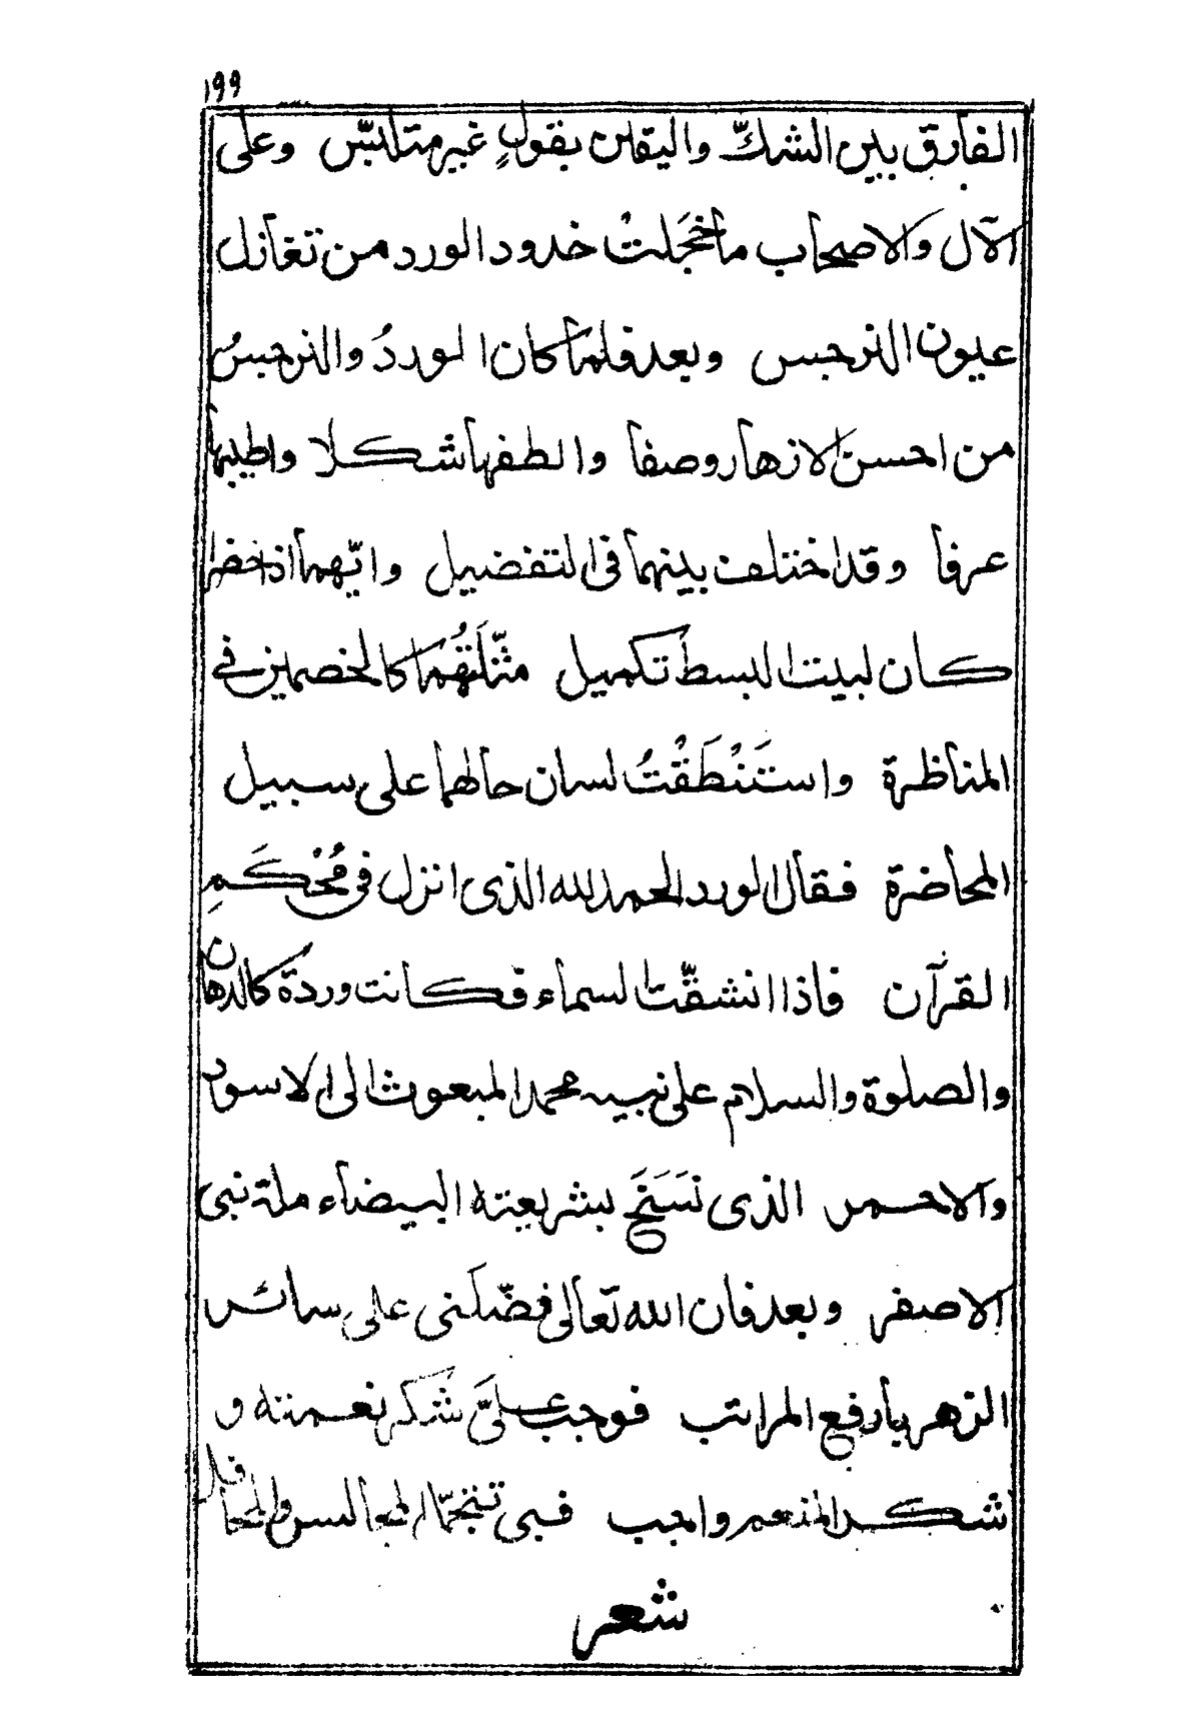 ١٩٩
الفارق بين الشكّ واليقين بقولٍ غير متلبّس وعلى
الآل والاصحاب ما خَجَلتْ خدود الورد من تغازل
عيون النرجس وبعد فلما كان الوردُ والنرجسُ
من احسن الازهار وصفا والطفها شكلا واطيبها
عرفا وقد اختلف بينهما فى التفضيل وايّهما اذا حضر
كان لبيت البسط تكميل مثّلَتُهُمَا كالخصمين فى
المناظرة واستَنْطَقْتُ لسان حالهما على سبيل
المحاضرة فقال الورد الحمد لله الذى انزل فى مُحْكَمِ
القرآن فاذا انشقّت السماء فكانت وردة كالدهان
والصلوة والسلام على نبيه محمد المبعوث الى الاسود
والاحمر الذى نَسَخَ بشريعته البيضاء ملة نبى
الاصفر وبعد فان الله تعالى فضّلنى على سائر
الزهر بارفع المراتب فوجب علىَّ شكر نعمته و
شكر المنعم واجب فبى تتجمّل المجالس والمحافل
شعر